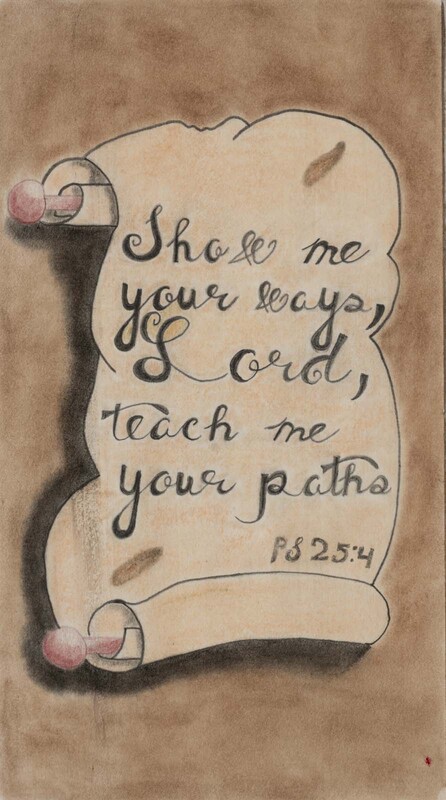 Show me
your ways,
Lord,
teach me
your paths
PS 25:4